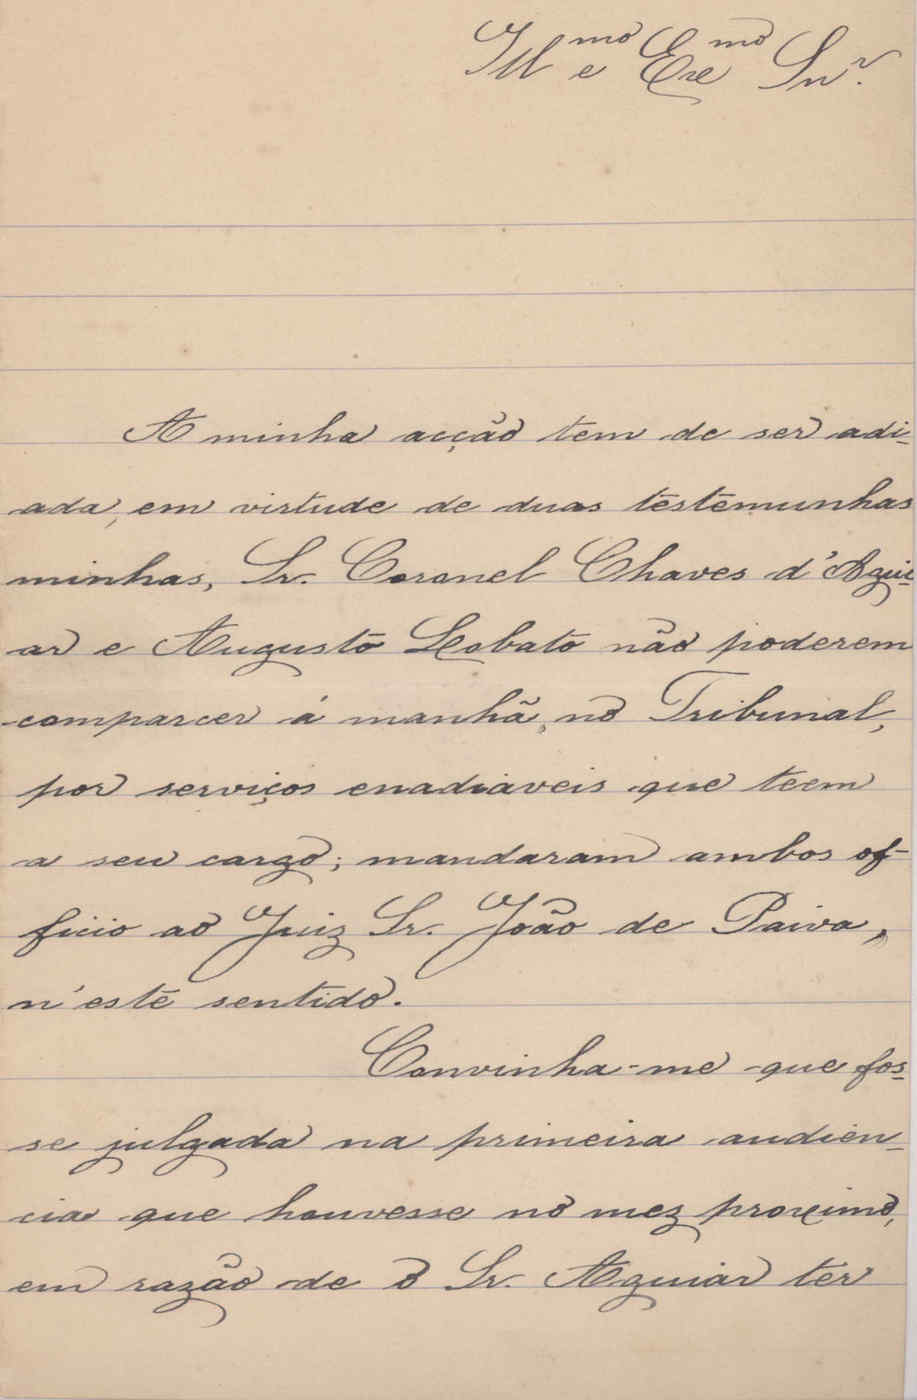 Ill^mo e Exc^mo Snr.
A minha acção tem de ser adi-
ada, em virtude de duas testemunhas
minhas, Sr. Coronel Chaves d'Agui-
ar e Augusto Lobato não poderem
comparcer á manhã, no Tribunal,
por serviços enadiaveis que teem
a seu cargo; mandaram ambos of-
ficio ao Juiz Sr. João de Paiva,
n'este sentido.
Convinha-me que fos-
se julgada na primeira audien-
cia que houvesse no mez proximo,
em razão de o Sr. Aguiar ter